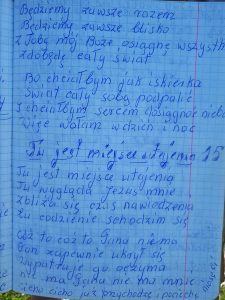 Będziemy zawsze razem
Będziemy zawsze blisko
Z Tobą mój Boże osiągnę wszystk
zdobędę cały świat
Bo chciałbym jak iskierka
Świat cały sobą podpalić
I chciałbym sercem dosięgnąć nieb
Więc wołam w dzień i noc
Tu jest miejsce utajenia 15
Tu jest miejsce utajenia
Tu wygląda Jezus mnie
Zbliża się czas nawiedzenia
Tu codziennie schodzim się
Cóż to cóż to Pana nie ma
Pan zapewnie ukrył się
Wypatruję go oczyma
nie ma Pana nie ma mnie
cicho cicho już przychodzi